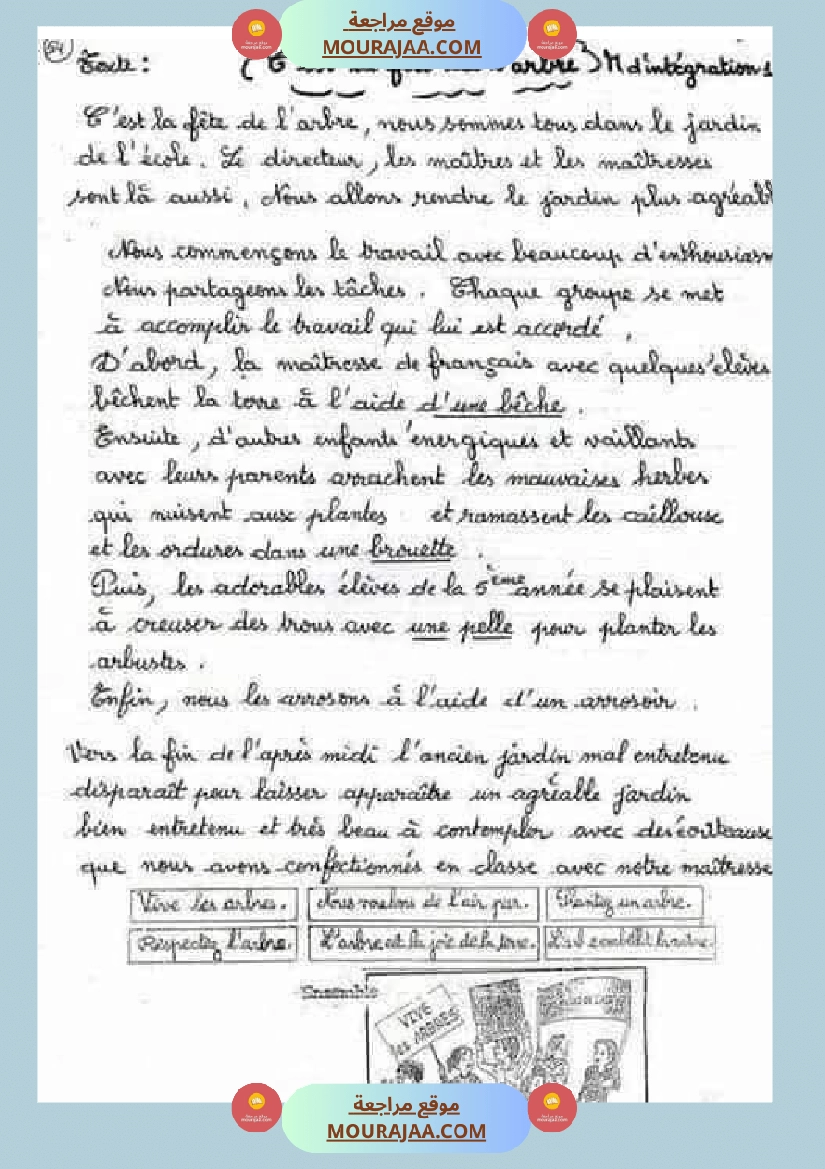 موقع مراجعة
MOURAJAA.COM
54
Texte : l'arbre) M d'intégration 1
C'est la fête de l'arbre, nous sommes tous dans le jardin
de l'école. Le directeur, les maîtres et les maîtresses
sont là aussi. Nous allons rendre le jardin plus agréabl
Nous commençons le travail avec beaucoup d'enthousiasm
Nous partageons les tâches. Chaque groupe se met
à accomplir le travail qui lui est accordé.
D'abord, la maîtresse de français avec quelques élèves
bêchent la terre à l'aide d'une bêche.
Ensuite, d'autres enfants énergiques et vaillants
avec leurs parents arrachent les mauvaises herbes
qui nuisent aux plantes et ramassent les cailloux
et les ordures dans une brouette.
Puis, les adorables élèves de la 5ème année se plaisent
à creuser des trous avec une pelle pour planter les
arbustes.
Enfin, nous les arrosons à l'aide d'un arrosoir.
Vers la fin de l'après midi l'ancien jardin mal entretenu
disparaît pour laisser apparaître un agréable jardin
bien entretenu et très beau à contempler avec des écriteaux
que nous avons confectionnés en classe avec notre maîtresse
Vive les arbres. Nous voulons de l'air pur. Plantez un arbre.
Respectez l'arbre. L'arbre est la joie de la terre. embellit
Ensemble
VIVE
les ARBRES
موقع مراجعة
MOURAJAA.COM